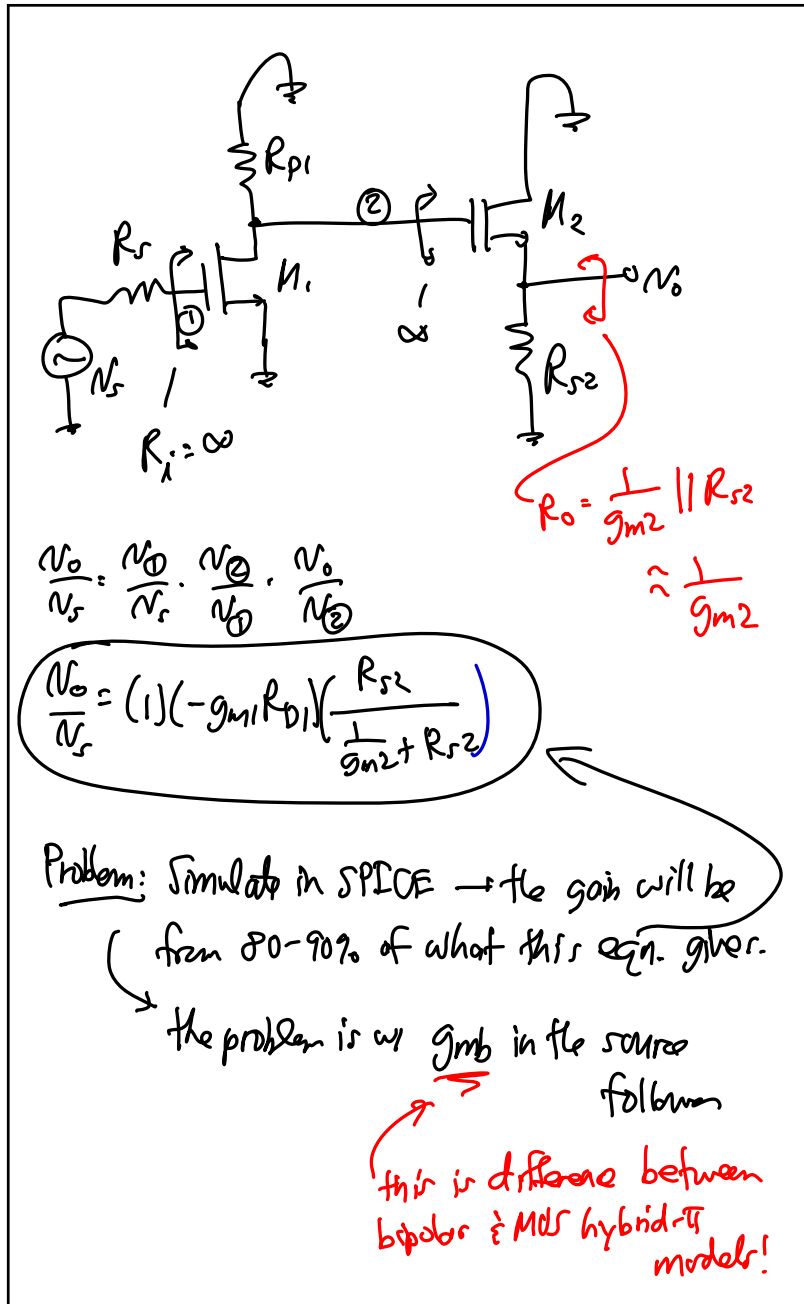 R_D1
②
M_2
R_s
M_1
①
∞
v_o
v_s
R_s2
R_i = ∞
R_o = 1/g_m2 || R_s2
≈ 1/g_m2
v_o/v_s = v_①/v_s · v_②/v_① · v_o/v_②
v_o/v_s = (1)(-g_m1 R_D1)(R_s2/(1/g_m2 + R_s2))
Problem: Simulate in SPICE → the gain will be
from 80-90% of what this eqn. gives.
the problem is w/ gmb in the source
follower
this is difference between
bipolar & MOS hybrid-π
models!